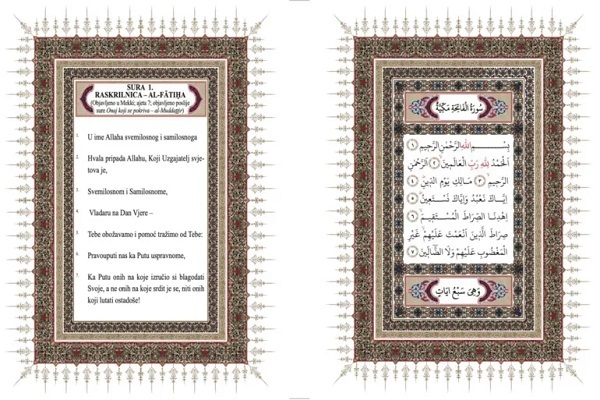 SURA 1.
RASKRILNICA – AL-FĀTIḤA
(Objavljeno u Mekki; ajeta 7; objavljeno poslije
sure Onaj koji se pokriva – al-Muddaṯṯir)
1. U ime Allaha svemilosnog i samilosnoga
2. Hvala pripada Allahu, Koji Uzgajatelj svje-
tova je,
3. Svemilosnom i Samilosnome,
4. Vladaru na Dan Vjere –
5. Tebe obožavamo i pomoć tražimo od Tebe:
6. Pravouputi nas ka Putu uspravnome,
7. Ka Putu onih na koje izručio si blagodati
Svoje, a ne onih na koje srdit je se, niti onih
koji lutati ostadoše!
سُورَةُ الْفَاتِحَةِ مَكِّيَّةٌ
بِسْمِ اللهِ الرَّحْمٰنِ الرَّحِيمِ ﴿١﴾
اَلْحَمْدُ لِلّٰهِ رَبِّ الْعَالَمِينَ ﴿٢﴾ اَلرَّحْمٰنِ
الرَّحِيمِ ﴿٣﴾ مَالِكِ يَوْمِ الدِّينِ ﴿٤﴾
إِيَّاكَ نَعْبُدُ وَإِيَّاكَ نَسْتَعِينُ ﴿٥﴾
اِهْدِنَا الصِّرَاطَ الْمُسْتَقِيمَ ﴿٦﴾
صِرَاطَ الَّذِينَ أَنْعَمْتَ عَلَيْهِمْ غَيْرِ
الْمَغْضُوبِ عَلَيْهِمْ وَلَا الضَّالِّينَ ﴿٧﴾
وَهِيَ سَبْعُ اٰيَاتٍ